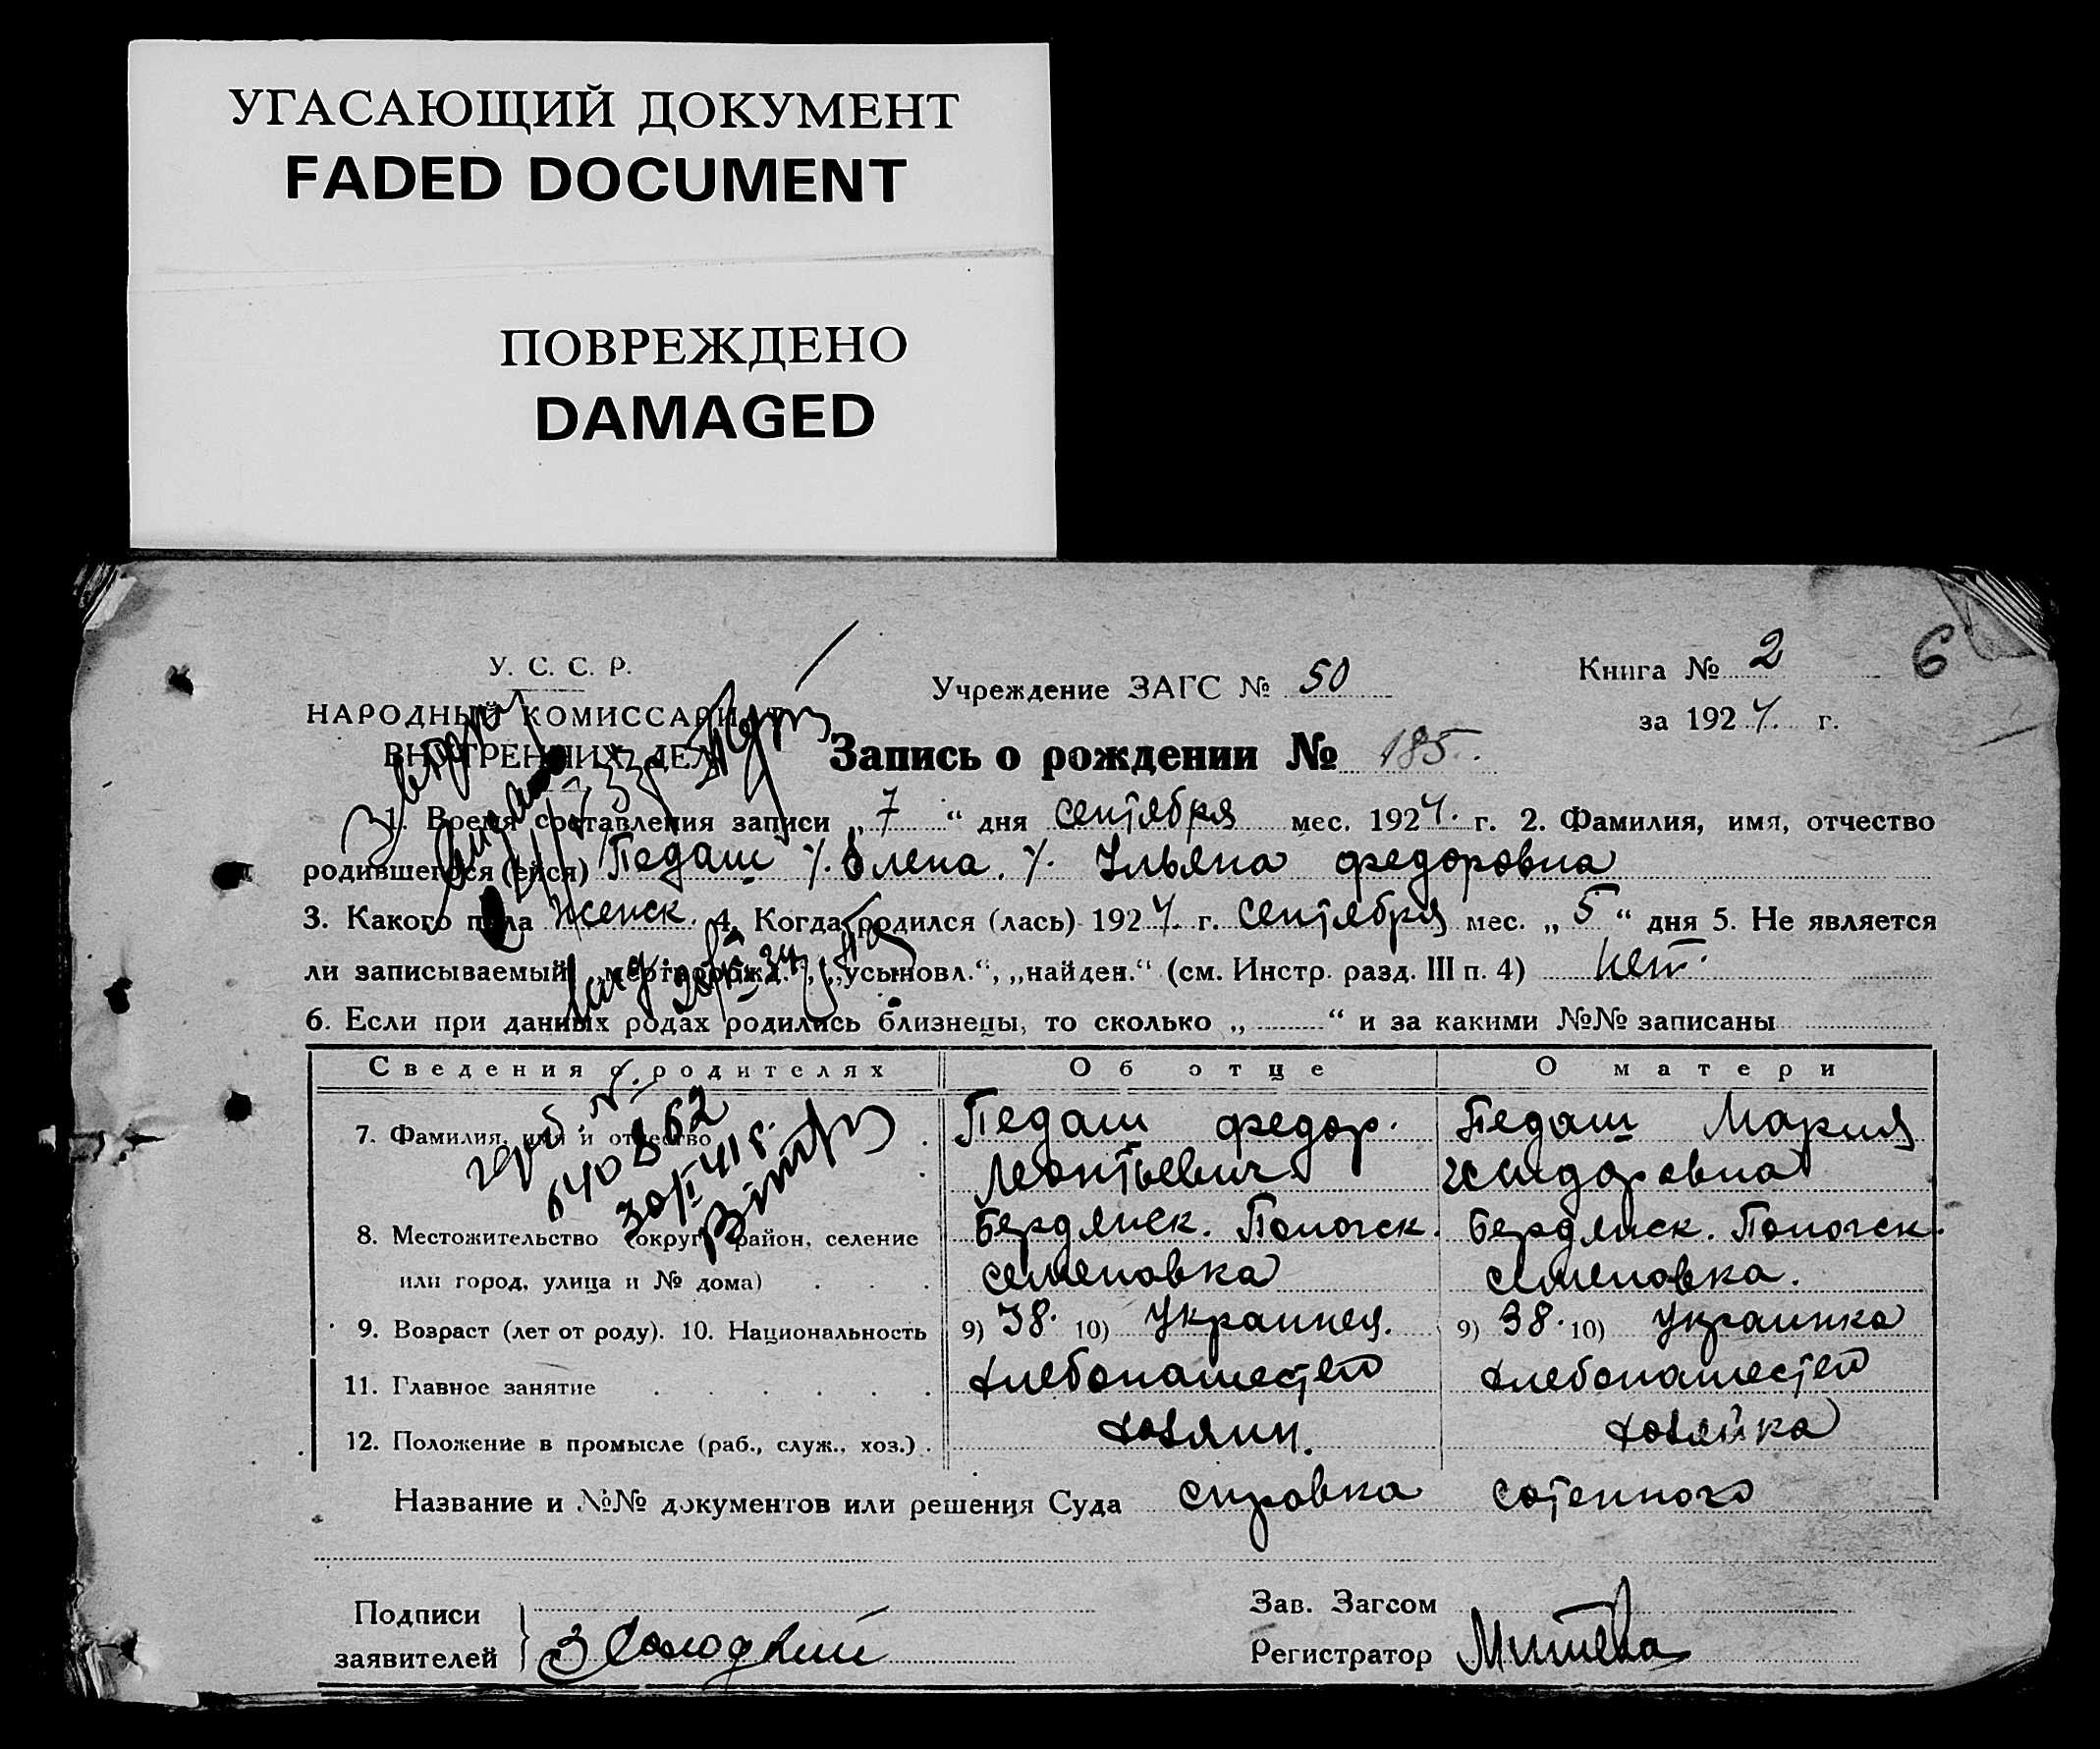 УГАСАЮЩИЙ ДОКУМЕНТ
FADED DOCUMENT
ПОВРЕЖДЕНО
DAMAGED
У. С. С. Р.
НАРОДНЫЙ КОМИССАРИАТ
ВНУТРЕННИХ ДЕЛ
Учреждение ЗАГС № 50
Книга № 2
6
за 1924 г.
Запись о рождении № 185
1. Время составления записи „7“ дня сентября мес. 1924. г. 2. Фамилия, имя, отчество
родившегося (ейся) Педаш /. Олена. /. Ульяна федоровна
3. Какого пола женск. 4. Когда родился (лась) 1924. г. сентября мес. „5“ дня 5. Не является
ли записываемый „мертворожд.“, „усыновл.“, „найден.“ (см. Инстр. разд. III п. 4) нет.
6. Если при данных родах родились близнецы, то сколько „ “ и за какими №№ записаны
Сведения о родителях Об отце О матери
7. Фамилия, имя и отчество Педаш федор. Педаш Мария
Леонтьевич Исидоровна
640862
8. Местожительство (округ, район, селение Бердянск. Пологск. Бердянск. Пологск.
или город, улица и № дома) семеновка семеновка.
9. Возраст (лет от роду). 10. Национальность 9) 38. 10) Украинец. 9) 38. 10) Украинка
11. Главное занятие хлебопашество хлебопашество
12. Положение в промысле (раб., служ., хоз.) хозяин. хозяйка
Название и №№ документов или решения Суда справка сотенного
Подписи
заявителей
Зав. Загсом
Регистратор